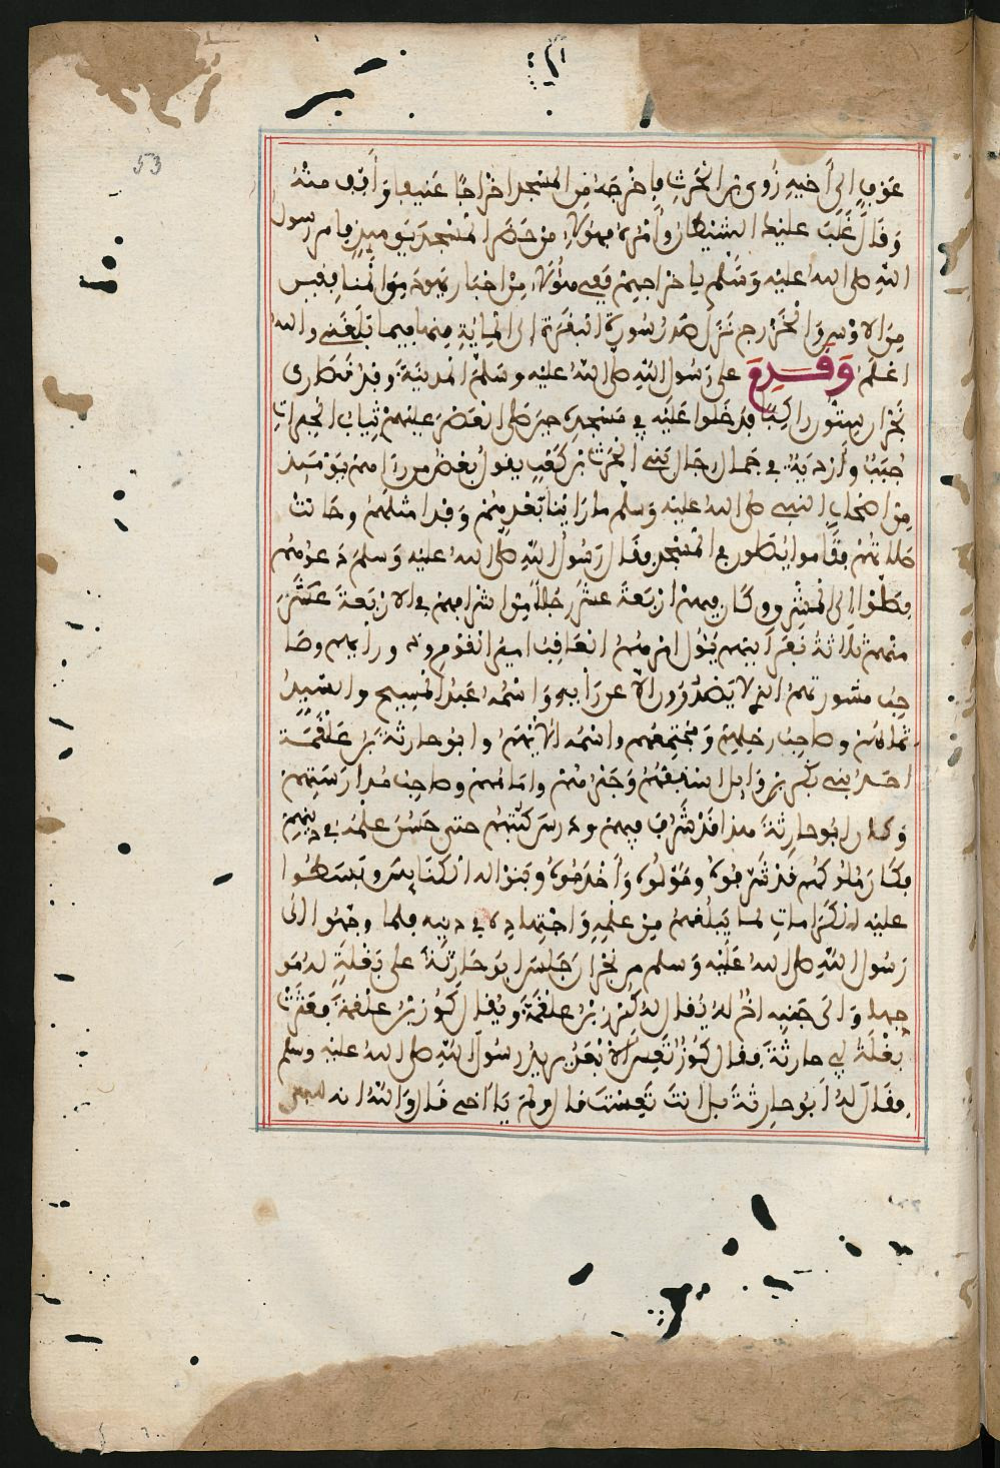 53
عوف الى أخيه زوى بن الحرث فاخرجه من المسجد اخراجا عنيفا وأفف منه
وقال غلب عليك الشيطان وأمره فهؤلاء من حضر المسجد يوميذ فامر رسول
الله صلى الله عليه وسلم باخراجهم ففي هؤلاء من اخبار يهود والمنافقين
من الاوس والخزرج نزل صدر سورة البقرة الى الماية منها فيما بلغني والله
اعلم وقدم على رسول الله صلى الله عليه وسلم المدينة وفد نصارى
نجران ستون راكبا فدخلوا عليه في مسجده حين صلى العصر عليهم ثياب الحبرات
جبب وأردية في جمال رجال بني الحرث بن كعب يقول بعض من رءاهم يومئذ
من اصحاب النبي صلى الله عليه وسلم ما راينا بعدهم وفدا مثلهم وحانت
صلاتهم فقاموا يصلون في المسجد فقال رسول الله صلى الله عليه وسلم دعوهم
فصلوا الى المشرق وكان فيهم اربعة عشر رجلا من اشرافهم في الاربعة عشر
منهم ثلاثة نفر اليهم يئول امرهم العاقب امير القوم وذو رايهم وصا
حب مشورتهم الذي لا يصدرون الا عن رايه واسمه عبد المسيح والسيد
ثمالهم وصاحب رحلهم ومجتمعهم واسمه الايهم وابو حارثة بن علقمة
احد بني بكر بن وايل اسقفهم وحبرهم وامامهم وصاحب مدارسهم
وكان ابو حارثة هذا قد شرف فيهم ودرس كتبهم حتى حسن علمه في دينهم
فكان ملوكهم قد شرفوه ومولوه وأخدموه وبنوا له الكنايس وبسطوا
عليه الكرامات لما يبلغهم من علمه واجتهاده في دينه فلما وجهوا الى
رسول الله صلى الله عليه وسلم من نجران جلس ابو حارثة على بغلة له مو
جها والى جنبه اخ له يقال له كرز بن علقمة ويقال كوز بن علقمة فعثرت
بغلة ابي حارثة فقال كوز تعس الابعد يريد رسول الله صلى الله عليه وسلم
فقال له أبو حارثة بل انت تعست قال ولم يا اخي قال والله انه للنبي